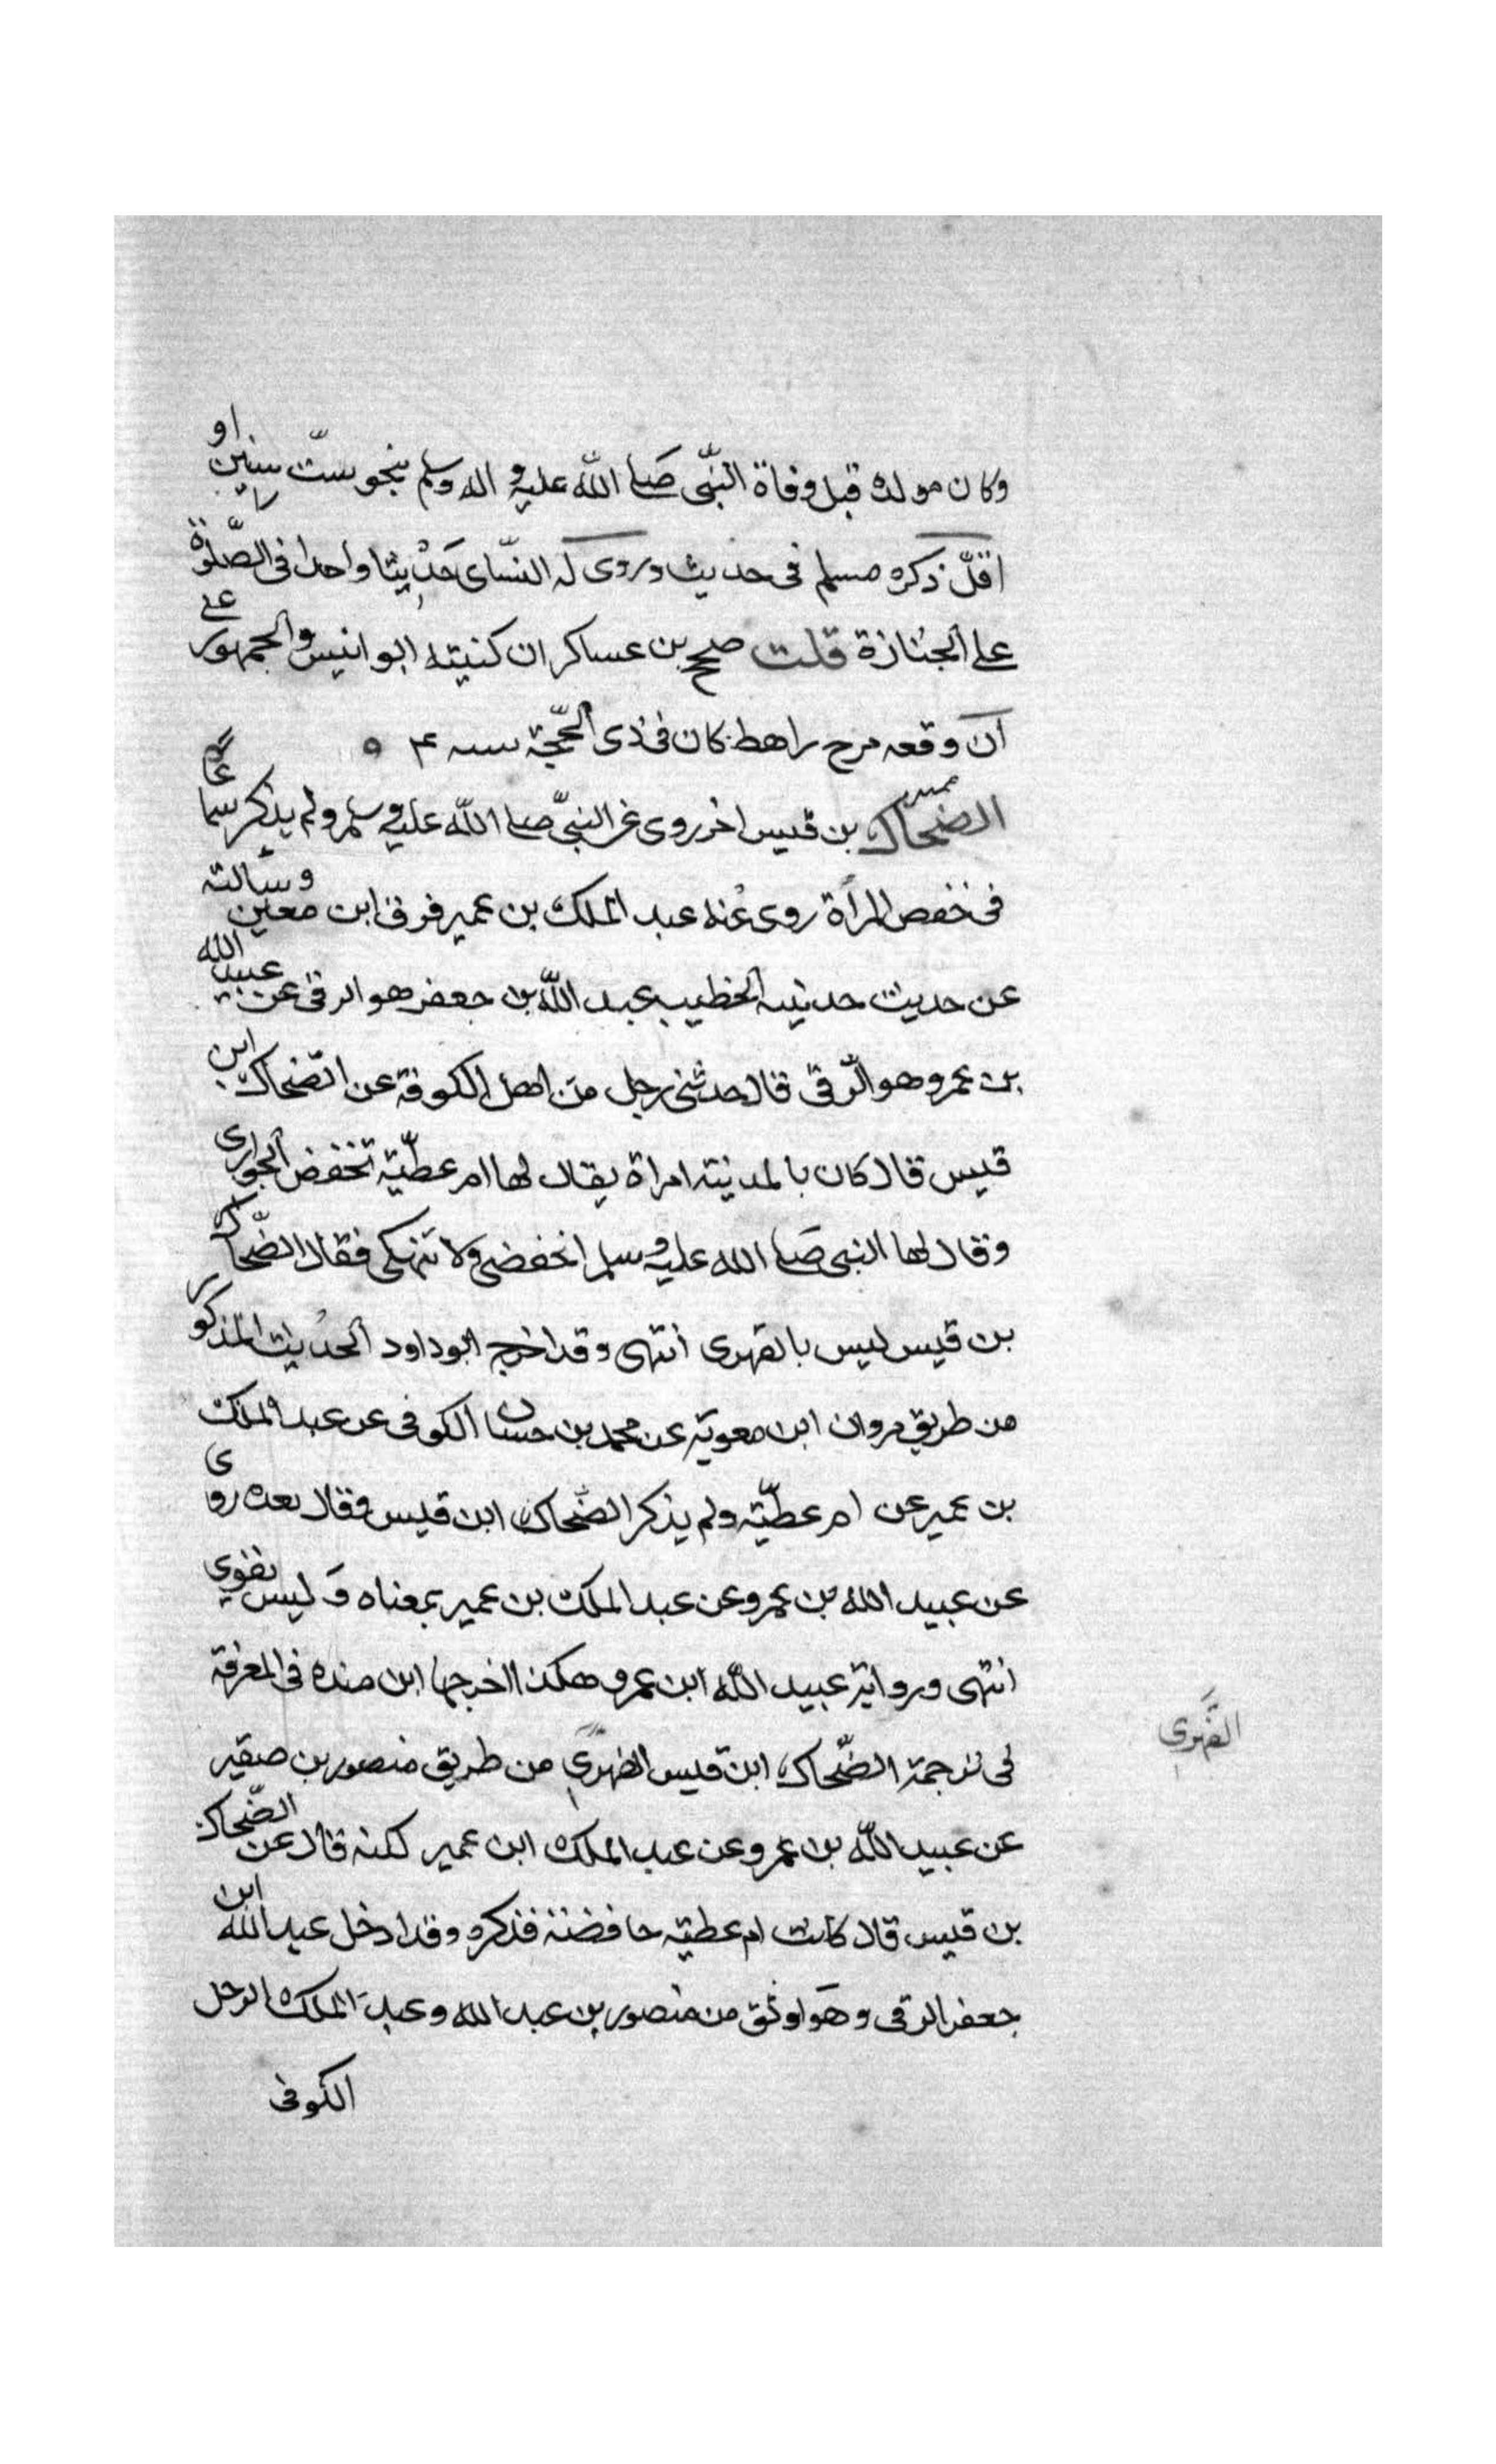 وكان مولده قبل وفاة النّبّى صلى اللّه عليه و اله وسلم بنحو ستّ سنين او
اقلّ ذكره مسلم فى حديث وروى له النسّاى حَدْيثا واحدا فى الصّلوة
على الجنازة قلت صحح بن عساكر ان كنيته ابو انيس والجمهور على
ان وقعه مرج راهط كان فى ذى الحّجّة سنه ۴ ه
الضحاك بن قيس اخر روى عن النبىّ صلى اللّه عليه وسلم ولم يذكر سماعا
فى خفص المرأة روى عنه عبد الملك بن عمير فرق ابن معين وسالته
عن حديث حدثنيه الخطيب عبد اللّه بن جعفر هو الرقى عن عبيد الله
بن عمرو هو الرّقى قال حدثنى رجل من اهل الكوفة عن الضحاك ابن
قيس قال كان بالمدينته امراة يقال لها ام عطّية تخفض الجوارى
وقال لها النبى صلى الله عليه وسلم اخفضى ولا تنهكى فقال الضّحاك
بن قيس ليس بالفهرى انتهى وقد اخرج ابوداود الحديث المذكور
من طريق مروان ابن معوية عن محمد بن حسان الكوفى عن عبد الملك
بن عمير عن ام عطّية ولم يذكر الضّحاك ابن قيس وقال بعده روى
عن عبيد الله بن عمرو عن عبد الملك بن عمير بمعناه وَ ليس بقوي
انتهى ورواية عبيد اللّه ابن عمرو هكذا اخرجها ابن منده فى المعرفة
فى ترجمة الضّحاك ابن قيس الفهرى من طريق منصور بن صقير
الفهري
عن عبيد اللّه بن عمرو عن عبد الملك ابن عمير لكنه قال عن الضّحاك
بن قيس قال كانت ام عطية خافضة فذكره وقد ادخل عبد الله ابن
جعفر الرقى وهو اوثق من منصور بين عبد الله وعبد الملك الرجل
الكوفى